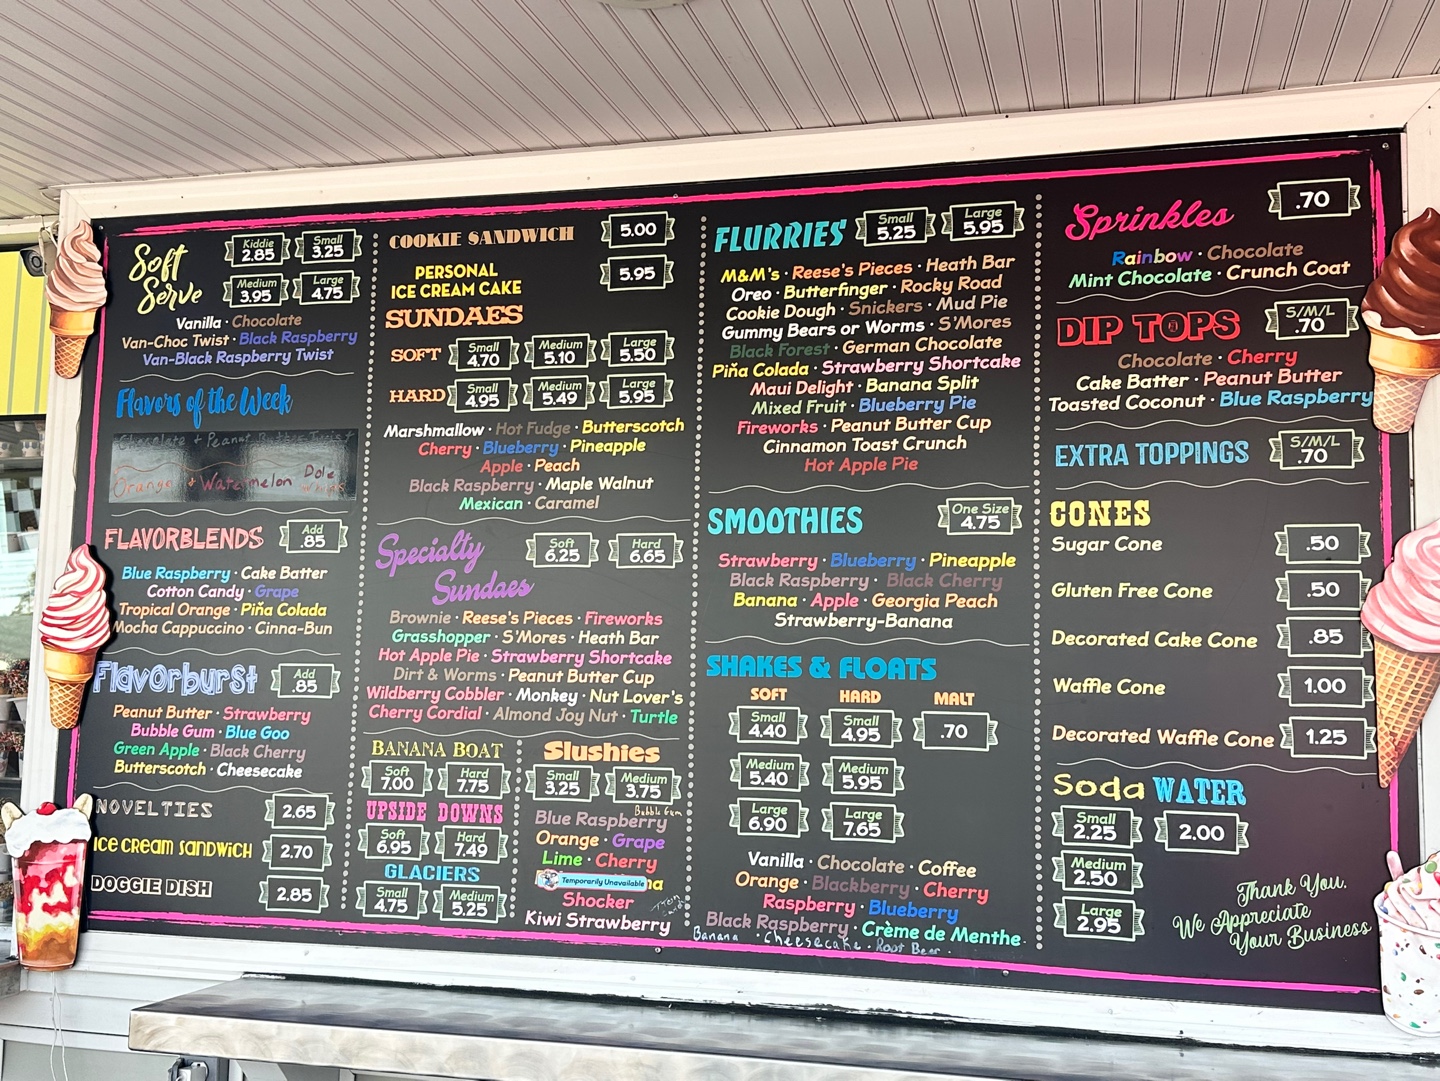 Soft
Serve
Kiddie
2.85
Small
3.25
Medium
3.95
Large
4.75
Vanilla · Chocolate
Van-Choc Twist · Black Raspberry
Van-Black Raspberry Twist
Flavors of the Week
Chocolate + Peanut Butter Twist
Orange + Watermelon Dole
FLAVORBLENDS
Add
.85
Blue Raspberry · Cake Batter
Cotton Candy · Grape
Tropical Orange · Piña Colada
Mocha Cappuccino · Cinna-Bun
Flavorburst
Add
.85
Peanut Butter · Strawberry
Bubble Gum · Blue Goo
Green Apple · Black Cherry
Butterscotch · Cheesecake
NOVELTIES
2.65
ICE CREAM SANDWICH
2.70
DOGGIE DISH
2.85
COOKIE SANDWICH
5.00
PERSONAL
ICE CREAM CAKE
5.95
SUNDAES
SOFT
Small
4.70
Medium
5.10
Large
5.50
HARD
Small
4.95
Medium
5.49
Large
5.95
Marshmallow · Hot Fudge · Butterscotch
Cherry · Blueberry · Pineapple
Apple · Peach
Black Raspberry · Maple Walnut
Mexican · Caramel
Specialty
Sundaes
Soft
6.25
Hard
6.65
Brownie · Reese's Pieces · Fireworks
Grasshopper · S'Mores · Heath Bar
Hot Apple Pie · Strawberry Shortcake
Dirt & Worms · Peanut Butter Cup
Wildberry Cobbler · Monkey · Nut Lover's
Cherry Cordial · Almond Joy Nut · Turtle
BANANA BOAT
Soft
7.00
Hard
7.75
UPSIDE DOWNS
Soft
6.95
Hard
7.49
GLACIERS
Small
4.75
Medium
5.25
Slushies
Small
3.25
Medium
3.75
Bubble Gum
Blue Raspberry
Orange · Grape
Lime · Cherry
Temporarily Unavailable
Shocker
Kiwi Strawberry
FLURRIES
Small
5.25
Large
5.95
M&M's · Reese's Pieces · Heath Bar
Oreo · Butterfinger · Rocky Road
Cookie Dough · Snickers · Mud Pie
Gummy Bears or Worms · S'Mores
Black Forest · German Chocolate
Piña Colada · Strawberry Shortcake
Maui Delight · Banana Split
Mixed Fruit · Blueberry Pie
Fireworks · Peanut Butter Cup
Cinnamon Toast Crunch
Hot Apple Pie
SMOOTHIES
One Size
4.75
Strawberry · Blueberry · Pineapple
Black Raspberry · Black Cherry
Banana · Apple · Georgia Peach
Strawberry-Banana
SHAKES & FLOATS
SOFT HARD MALT
Small
4.40
Small
4.95
.70
Medium
5.40
Medium
5.95
Large
6.90
Large
7.65
Vanilla · Chocolate · Coffee
Orange · Blackberry · Cherry
Raspberry · Blueberry
Black Raspberry · Crème de Menthe
Banana · Cheesecake · Root Beer
Sprinkles
.70
Rainbow · Chocolate
Mint Chocolate · Crunch Coat
DIP TOPS
S/M/L
.70
Chocolate · Cherry
Cake Batter · Peanut Butter
Toasted Coconut · Blue Raspberry
EXTRA TOPPINGS
S/M/L
.70
CONES
Sugar Cone
.50
Gluten Free Cone
.50
Decorated Cake Cone
.85
Waffle Cone
1.00
Decorated Waffle Cone
1.25
Soda WATER
Small
2.25
2.00
Medium
2.50
Large
2.95
Thank You,
We Appreciate
Your Business